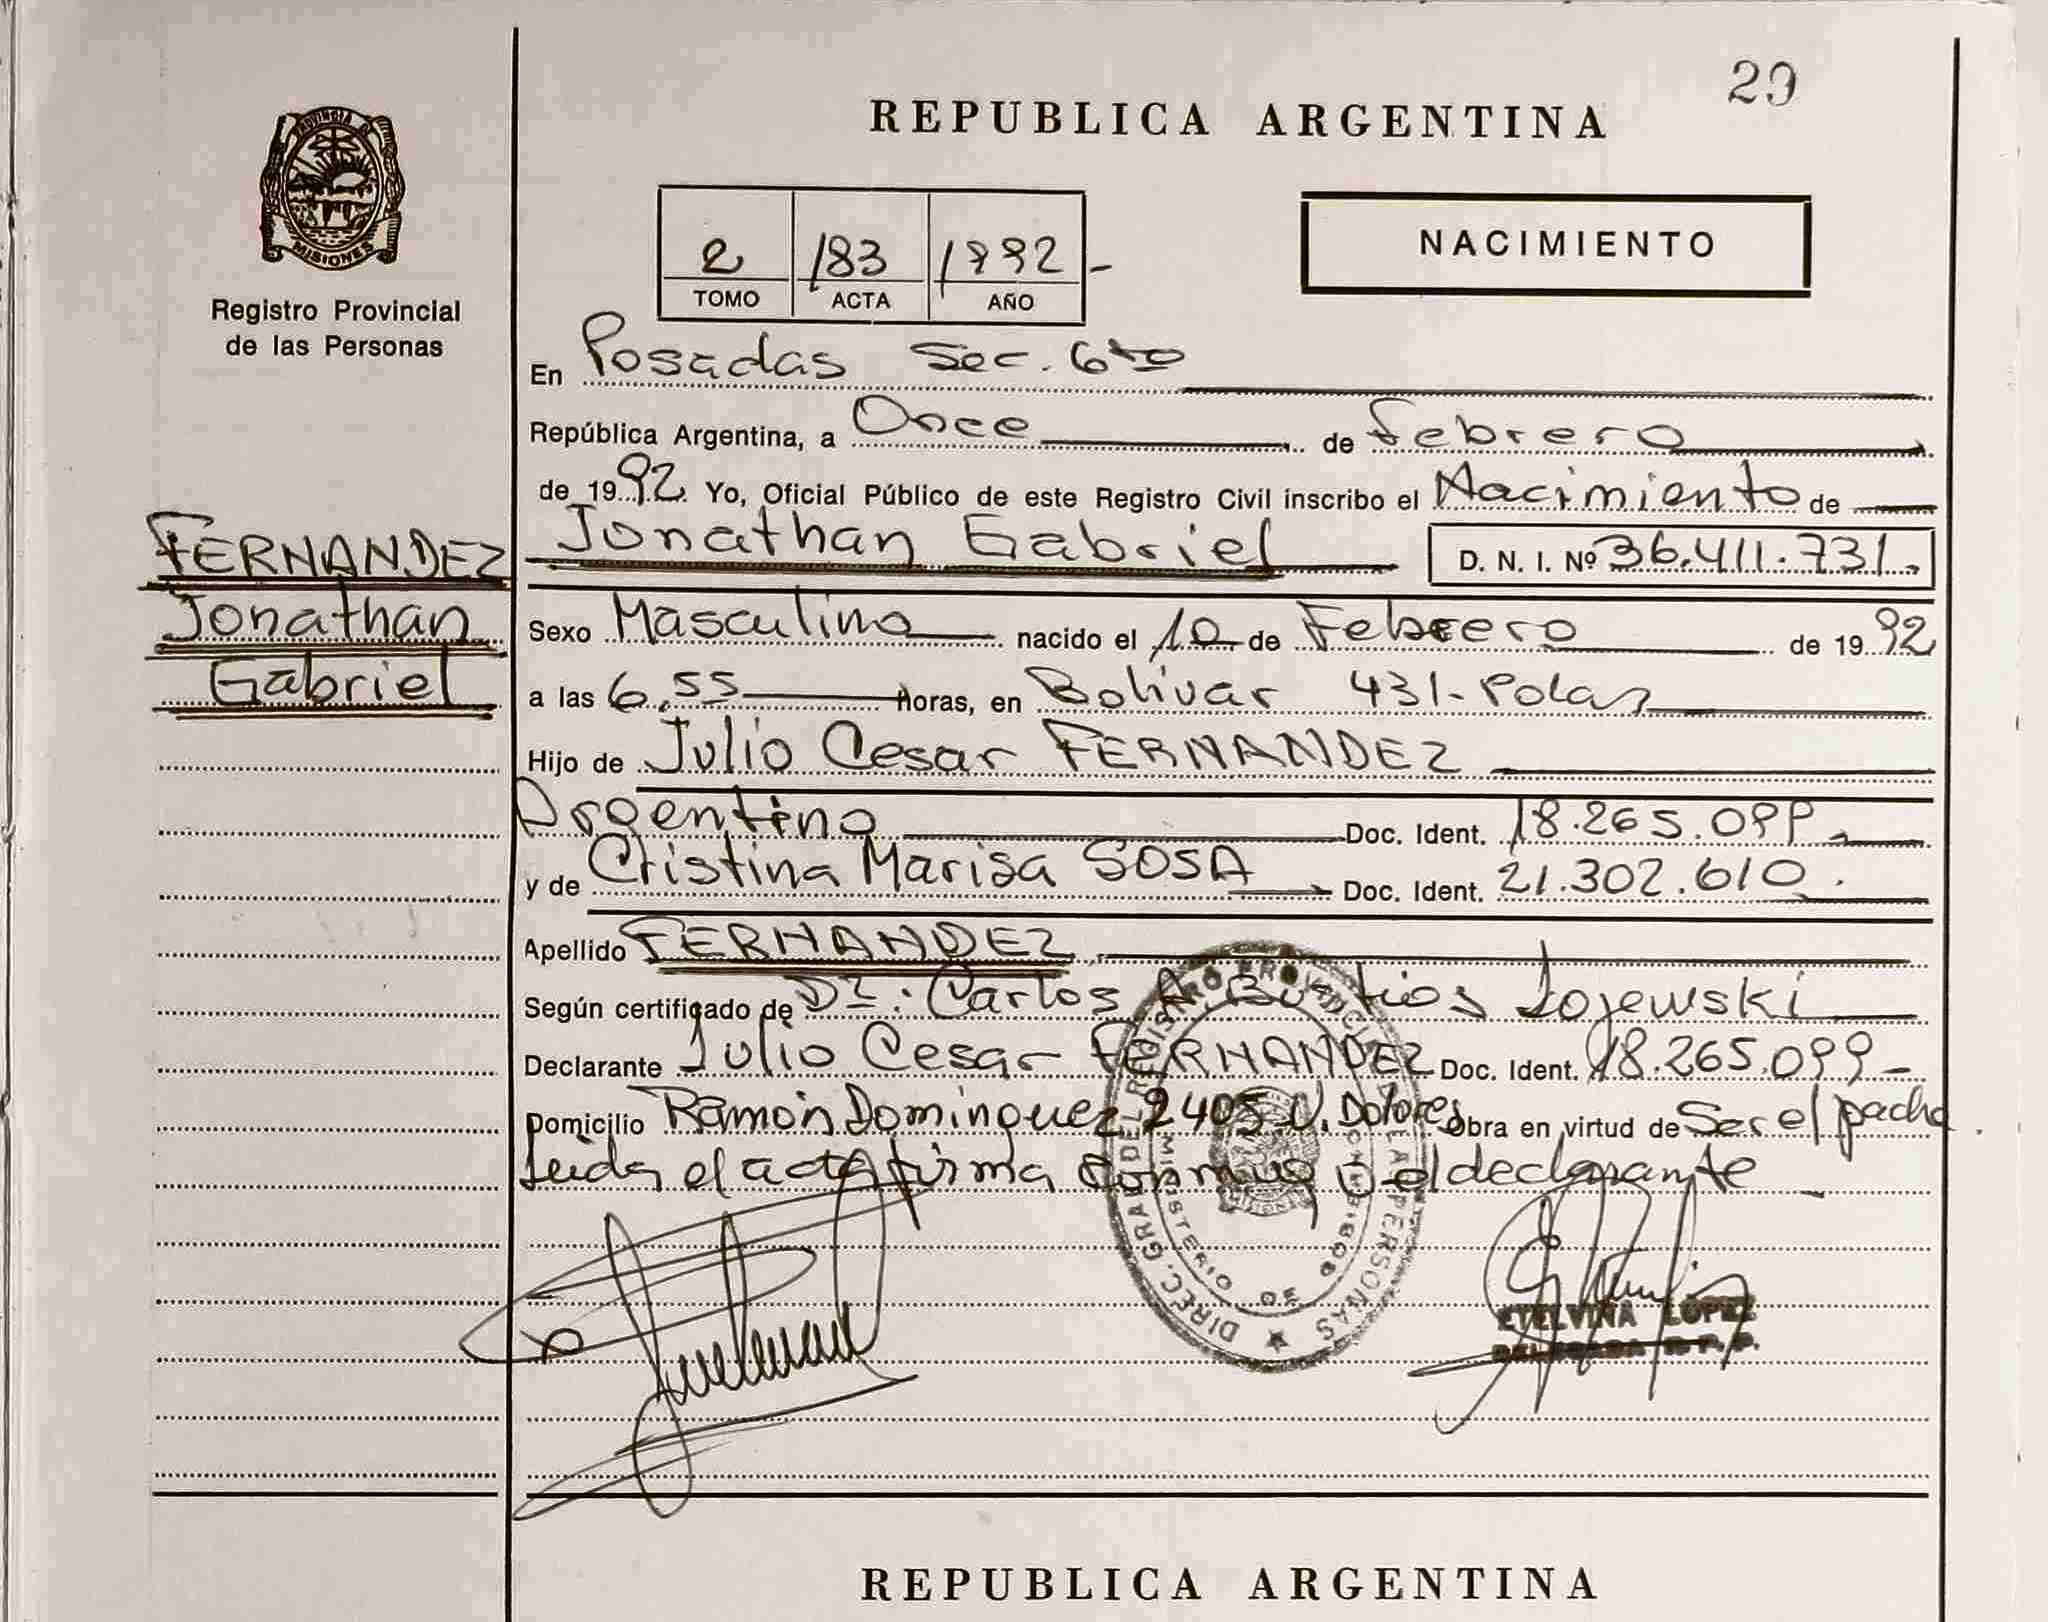 29
REPUBLICA ARGENTINA
PROVINCIA D
MISIONES
Registro Provincial
de las Personas
2 183 1992 -
TOMO ACTA AÑO
NACIMIENTO
En Posadas Sec. 6ta
República Argentina, a Once de Febrero
de 1992 Yo, Oficial Público de este Registro Civil inscribo el Nacimiento de
FERNANDEZ
Jonathan
Gabriel
Jonathan Gabriel D. N. I. Nº 36.411.731.
Sexo Masculino nacido el 10 de Febrero de 1992
a las 6,55 Horas, en Bolivar 431-
Hijo de Julio Cesar FERNANDEZ
Argentino Doc. Ident. 18.265.099
y de Cristina Marisa SOSA Doc. Ident. 21.302.610.
Apellido FERNANDEZ
Según certificado de Dr: Carlos A. Bustios Lojewski
Declarante Julio Cesar FERNANDEZ Doc. Ident. 18.265.099-
Domicilio Ramón Dominguez 2405 V. Dolores Obra en virtud de Ser el padre
Leida el acta firma conmigo el declarante
DIREC. GRAL DEL REGISTRO PROVINCIAL DE LAS PERSONAS
MINISTERIO DE GOBIERNO
ETELVINA LOPEZ
DELEGADA R. P. P.
REPUBLICA ARGENTINA